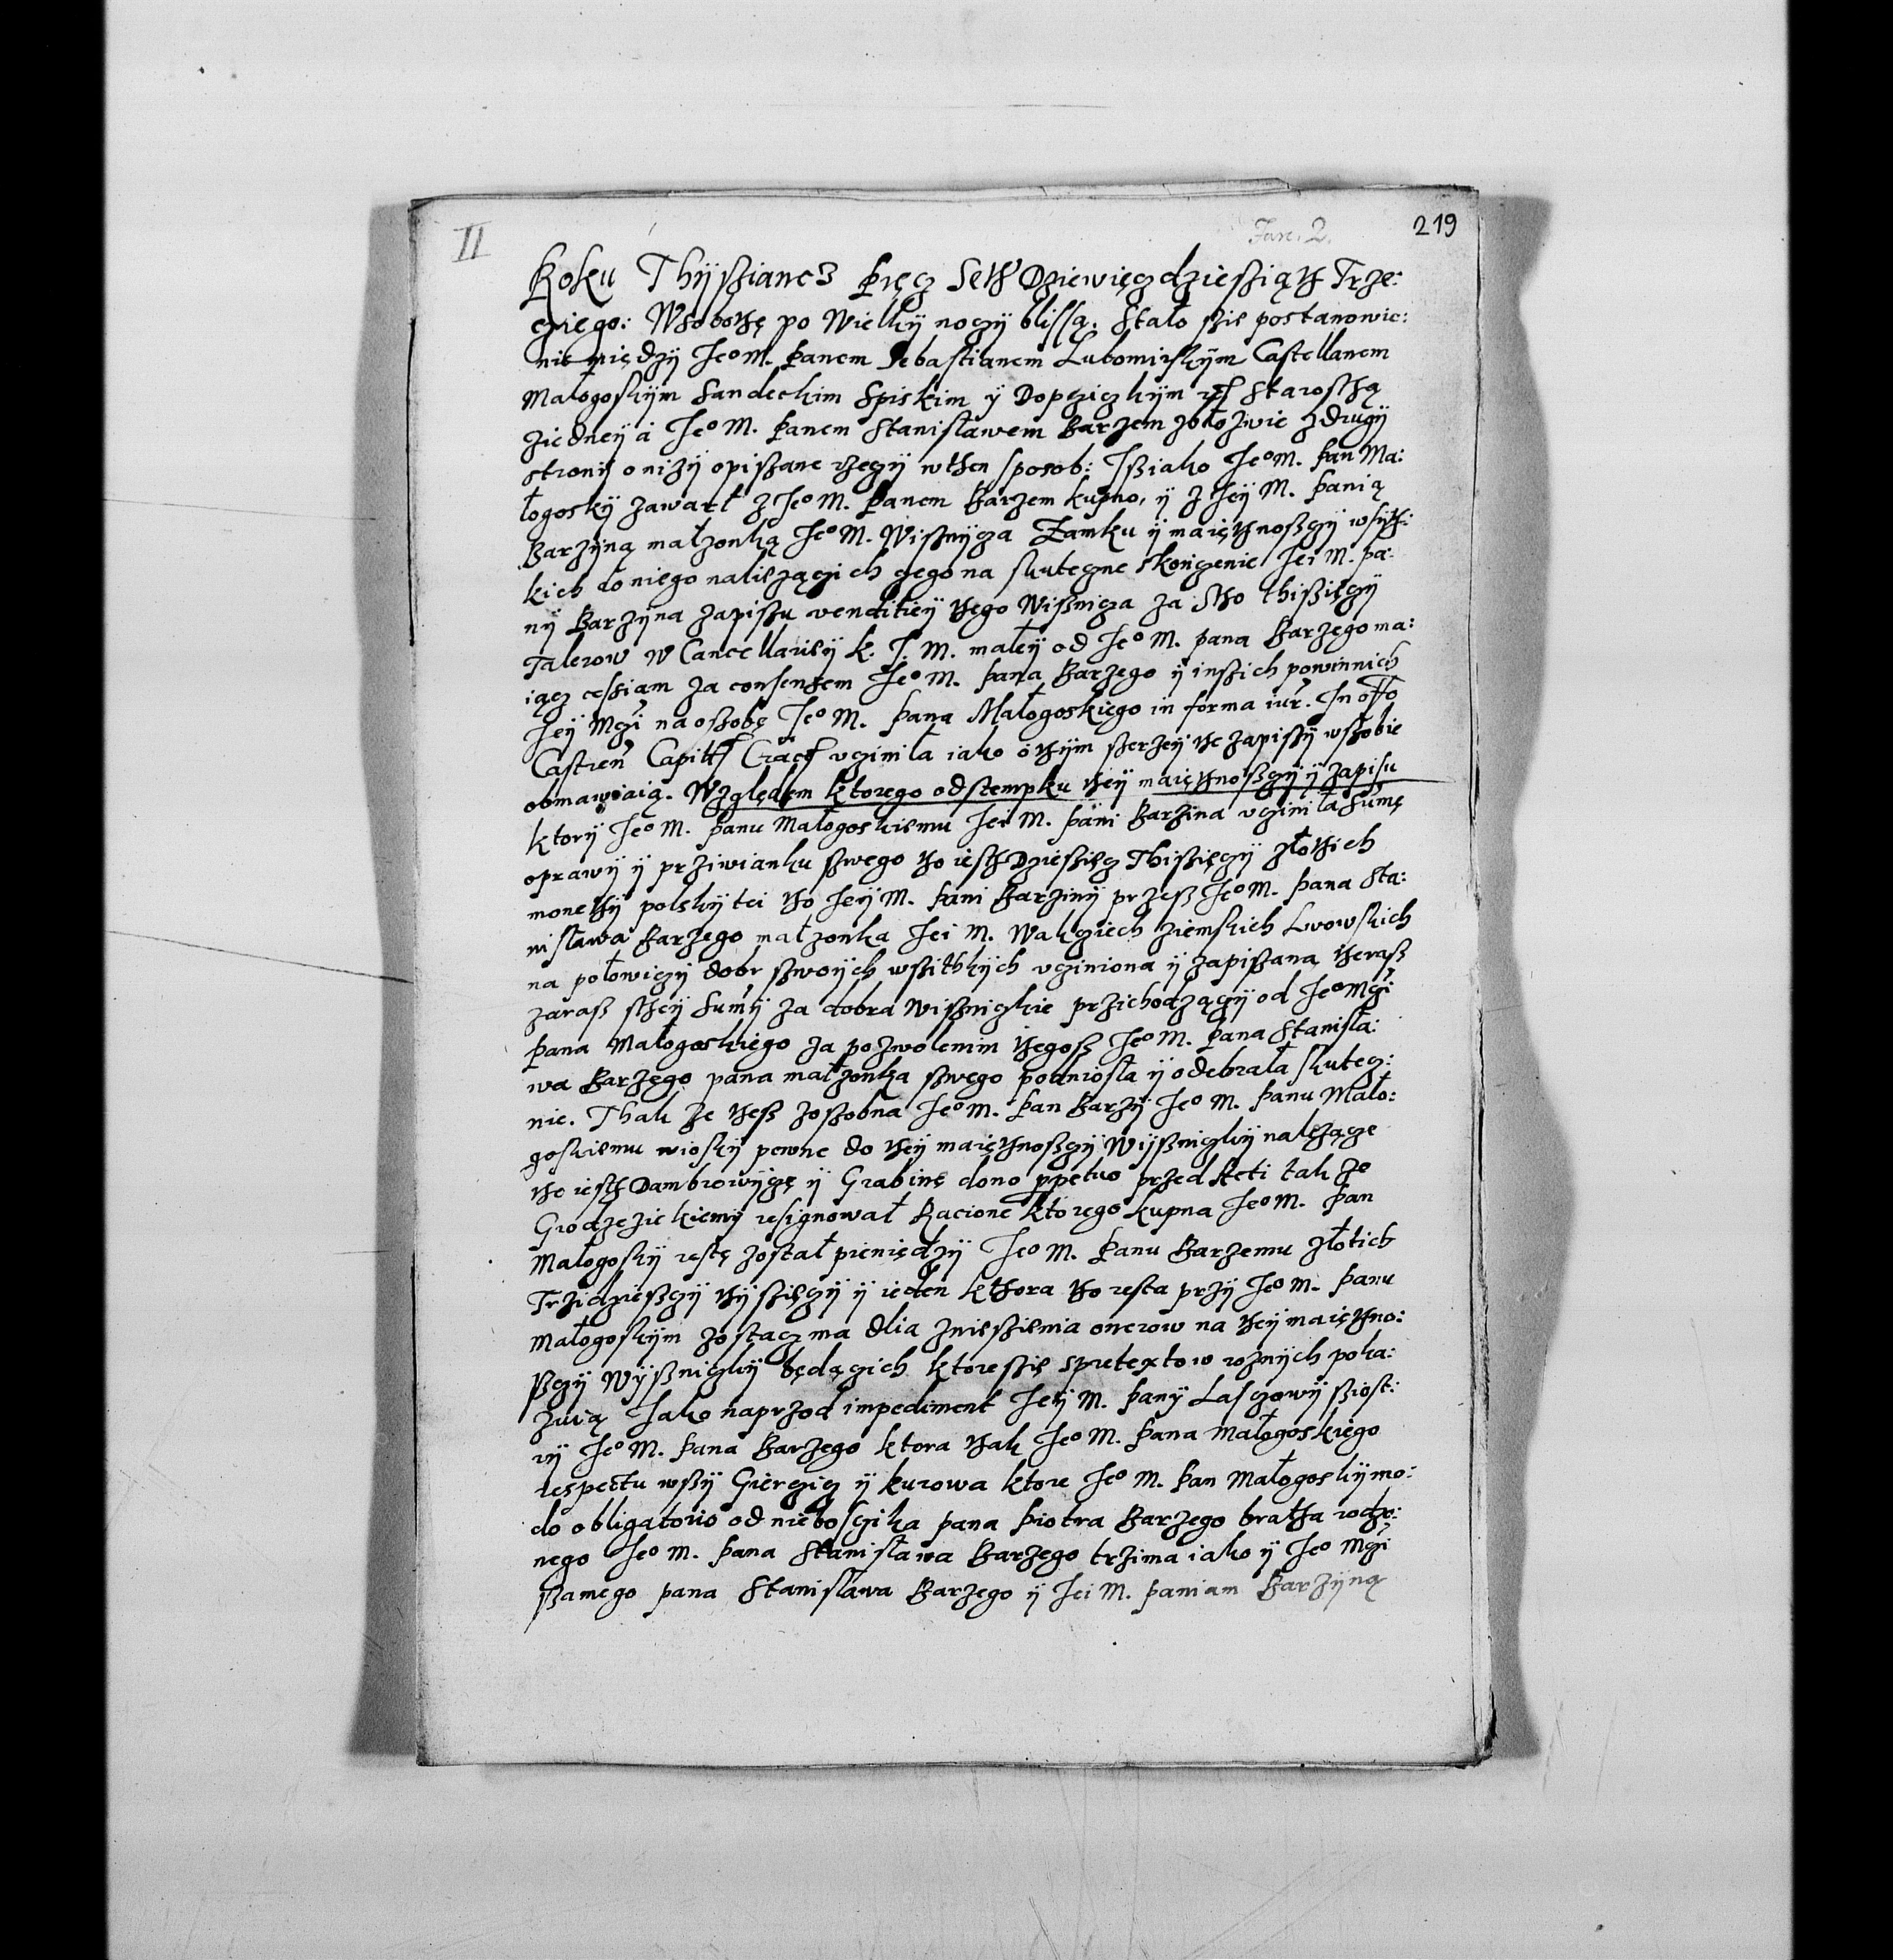 II
Fasc. 2.
219
Roku Thÿsziancz Pięcz Seth Dziewięczdziesiąth Trze:
cziego: Wsobothę po Wielkÿ noczÿ blissą. Stało szię postanowie:
nie międzÿ Jeo M. Panem Sebastianem Lubomirskÿm Castellanem
Małogoskÿm Sandeckim Spiskim ÿ Dopczickÿm etc Starosthą
ziedneÿ á Jeo M. Panem Stanisławem Barzem zobożwie zdrugÿ
stronÿ o niżÿ opiszane rzeczÿ wthen sposob: Isz iako Jeo M. Pan Ma:
łogoskÿ zawarł z Jeo M. Panem Barzem kupno, ÿ z Jeÿ M. Panią
Barzÿną małzonką Jeo M. Wisznÿcza Zamku ÿ maięthnosczÿ wsÿth:
kich do niego naliezączich czego na skuteczne skończenie Jei M. pa:
nÿ Barzÿna zapiszu venditieÿ thego Wisznicza za Stho thisięczÿ
Talerow W Cancellariÿ K. J. M. małeÿ od Jeo M. pana Barzego ma:
iącz cessiam za consensem Jeo M. pana Barzego ÿ inszich powinnich
Jeÿ Mczi na oszobę Jeo M. Pana Małogoskiego in forma iur. In offo
Castren Capitt Crac uczinila iako o thÿm szerzeÿ the zapissÿ wszobie
obmawiaią. Względem ktorego odstempku theÿ maięthnosczÿ ÿ zapisu
ktorÿ Jeo M. Panu Małogoskiemu Jei M. pani Barzina uczinila Sumę
oprawÿ ÿ prziwianku szwego tho iesth Dziesięcz Thisięczÿ złothich
monethÿ polskÿ tei tho Jeÿ M. Pani Barzinÿ przesz Jeo M. pana Sta:
nisława Barzego małzonka Jei M. Wakcziech ziemskich Lwowskich
na połowiczÿ dobr szwoÿch wszithkÿch ucziniona ÿ zapiszana therasz
zarasz stheÿ Sumÿ za dobra Wisznickie przichodzączÿ od Jeo Mczi
Pana Małogoskiego za pozwolenim thegosz Jeo M. Pana Stanisła:
wa Barzego pana małżonka szwego podniosła ÿ odebrała skutecz:
nie. Thak że thesz zoszobna Jeo M. Pan Barzÿ Jeo M. Panu Mało:
goskiemu wioskÿ pewne do theÿ maięthnosczÿ Wÿsznickÿ nalezące
tho iesth Dambrowÿcę ÿ Grabinę dono ppetuo przed Acti tak że
Grodzezickiemÿ resignował Racione ktorego kupna Jeo M. Pan
Małogoskÿ restę został pieniędzÿ Jeo M. Panu Barzemu złotich
Trzidzieszczÿ thÿsięczÿ ÿ ieden kthora tho resta przÿ Jeo M. Panu
Małogoskÿm zostacz ma dlia znieszienia onerow na theÿ maięthno:
szczÿ Wÿsznickÿ będączich ktore szię spretextow roznÿch poka:
zuią Jako naprzod impediment Jeÿ M. panÿ Lasczowÿ siost:
rÿ Jeo M. Pana Barzego ktora thak Jeo M. Pana Małogoskiego
respectu wsÿ Gierczicz ÿ Kurowa ktore Jeo M. Pan Małogoskÿ mo:
do obligatorio od niebosczika pana Piotra Barzego bratha rodzo:
nego Jeo M. Pana Stanisława Barzego trzima iako ÿ Jeo Mczi
szamego pana Stanisława Barzego ÿ Jei M. paniam Barzÿną